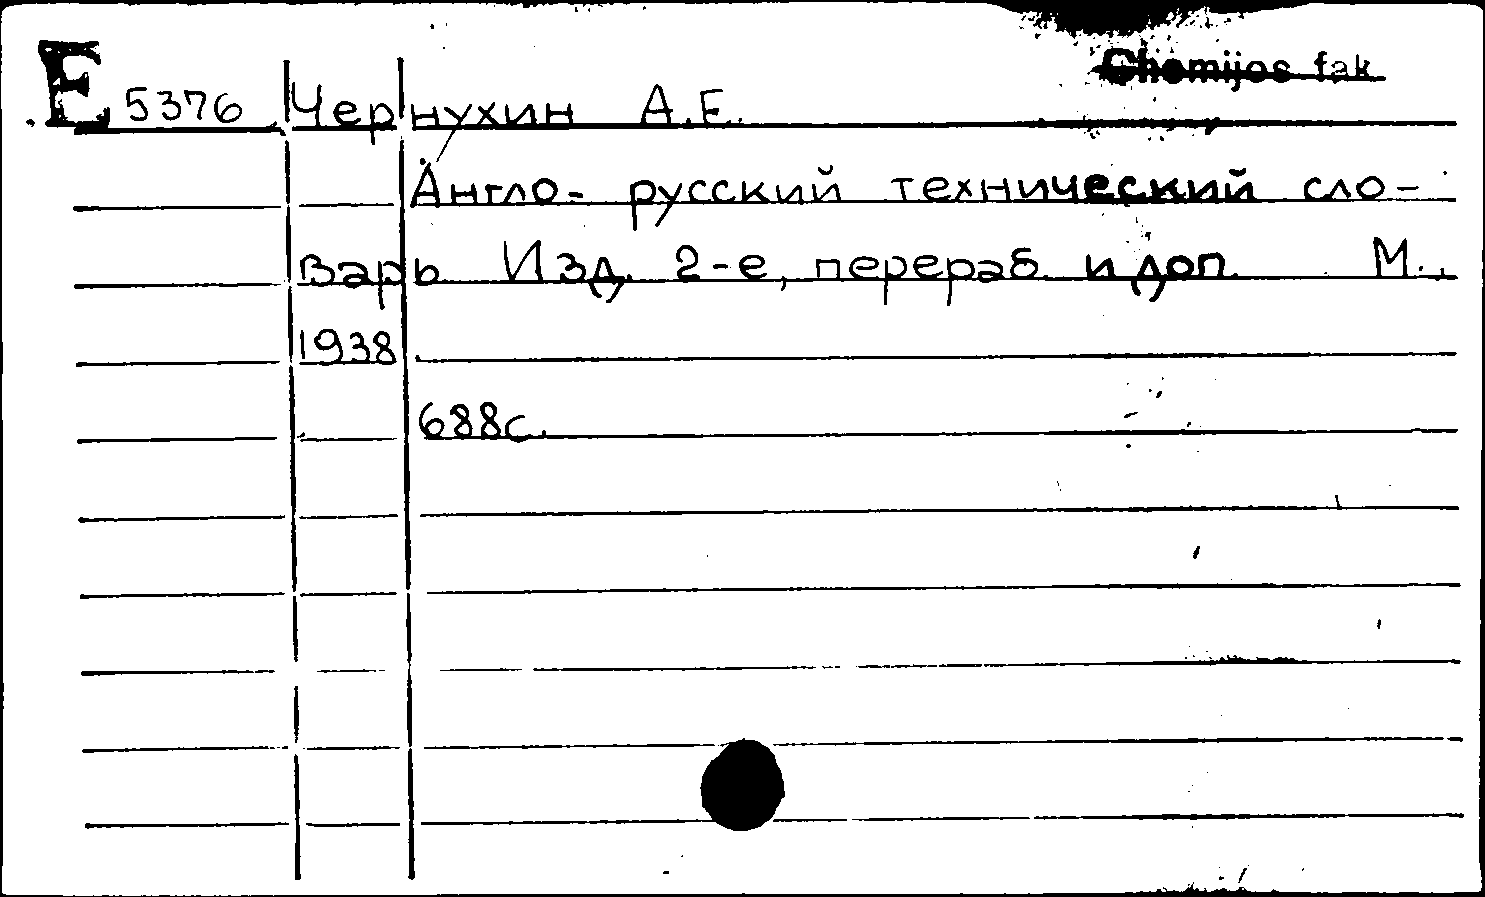 Chemijos fak
E 5376 Чернухин А.Е.
Англо-русский технический сло-
варь. Изд. 2-е, перераб. и доп. М.,
1938
688с.